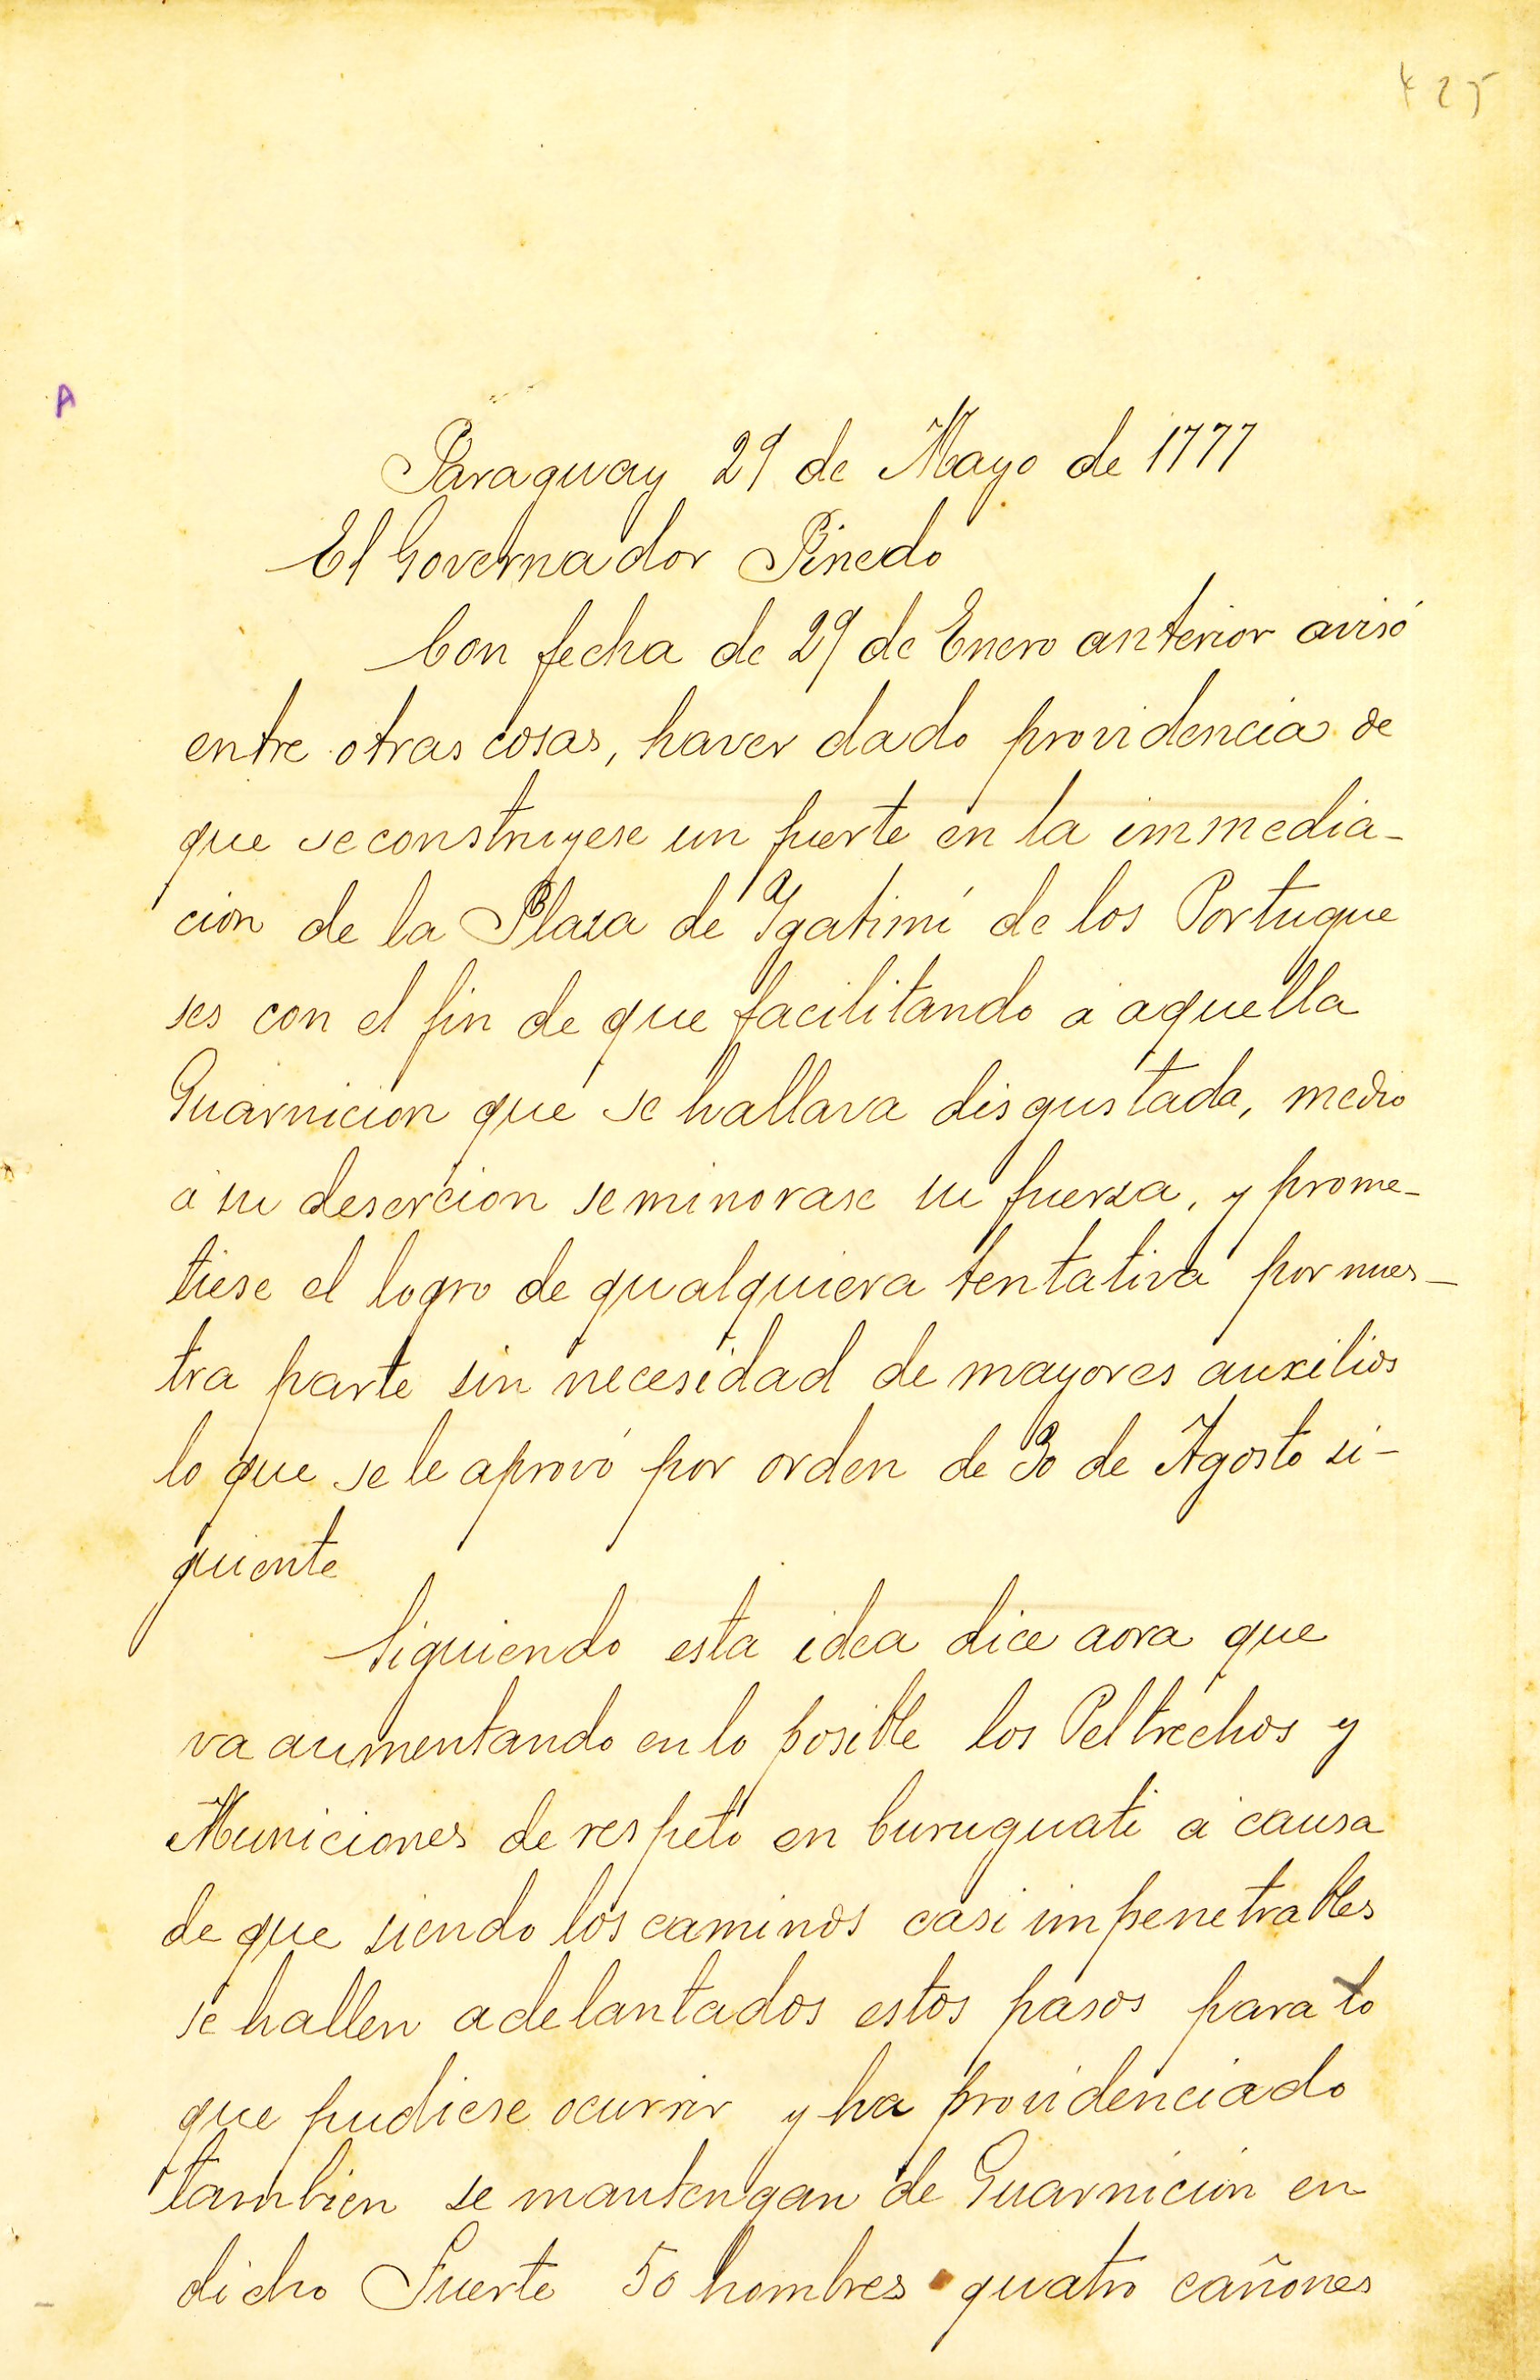 425
A
Paraguay 29 de Mayo de 1777
El Governador Pinedo
Con fecha de 29 de Enero anterior avisó
entre otras cosas, haver dado providencia de
que se construyese un fuerte en la immedia-
cion de la Plaza de Ygatimí de los Portugue
ses con el fin de que facilitando a aquella
Guarnicion que se hallava disgustada, medio
a su desercion se minorase su fuerza, y prome-
tiese el logro de qualquiera tentativa por nues-
tra parte sin necesidad de mayores auxilios
lo que se le aprovó por orden de 30 de Agosto si-
guiente
Siguiendo esta idea dice aora que
va aumentando en lo posible los Peltrechos y
Municiones de respeto en Curuguati a causa
de que siendo los caminos casi impenetrables
se hallen adelantados estos pasos para lo
que pudiese ocurrir y ha providenciado
tambien se mantengan de Guarnicion en
dicho Fuerte 50 hombres quatro cañones